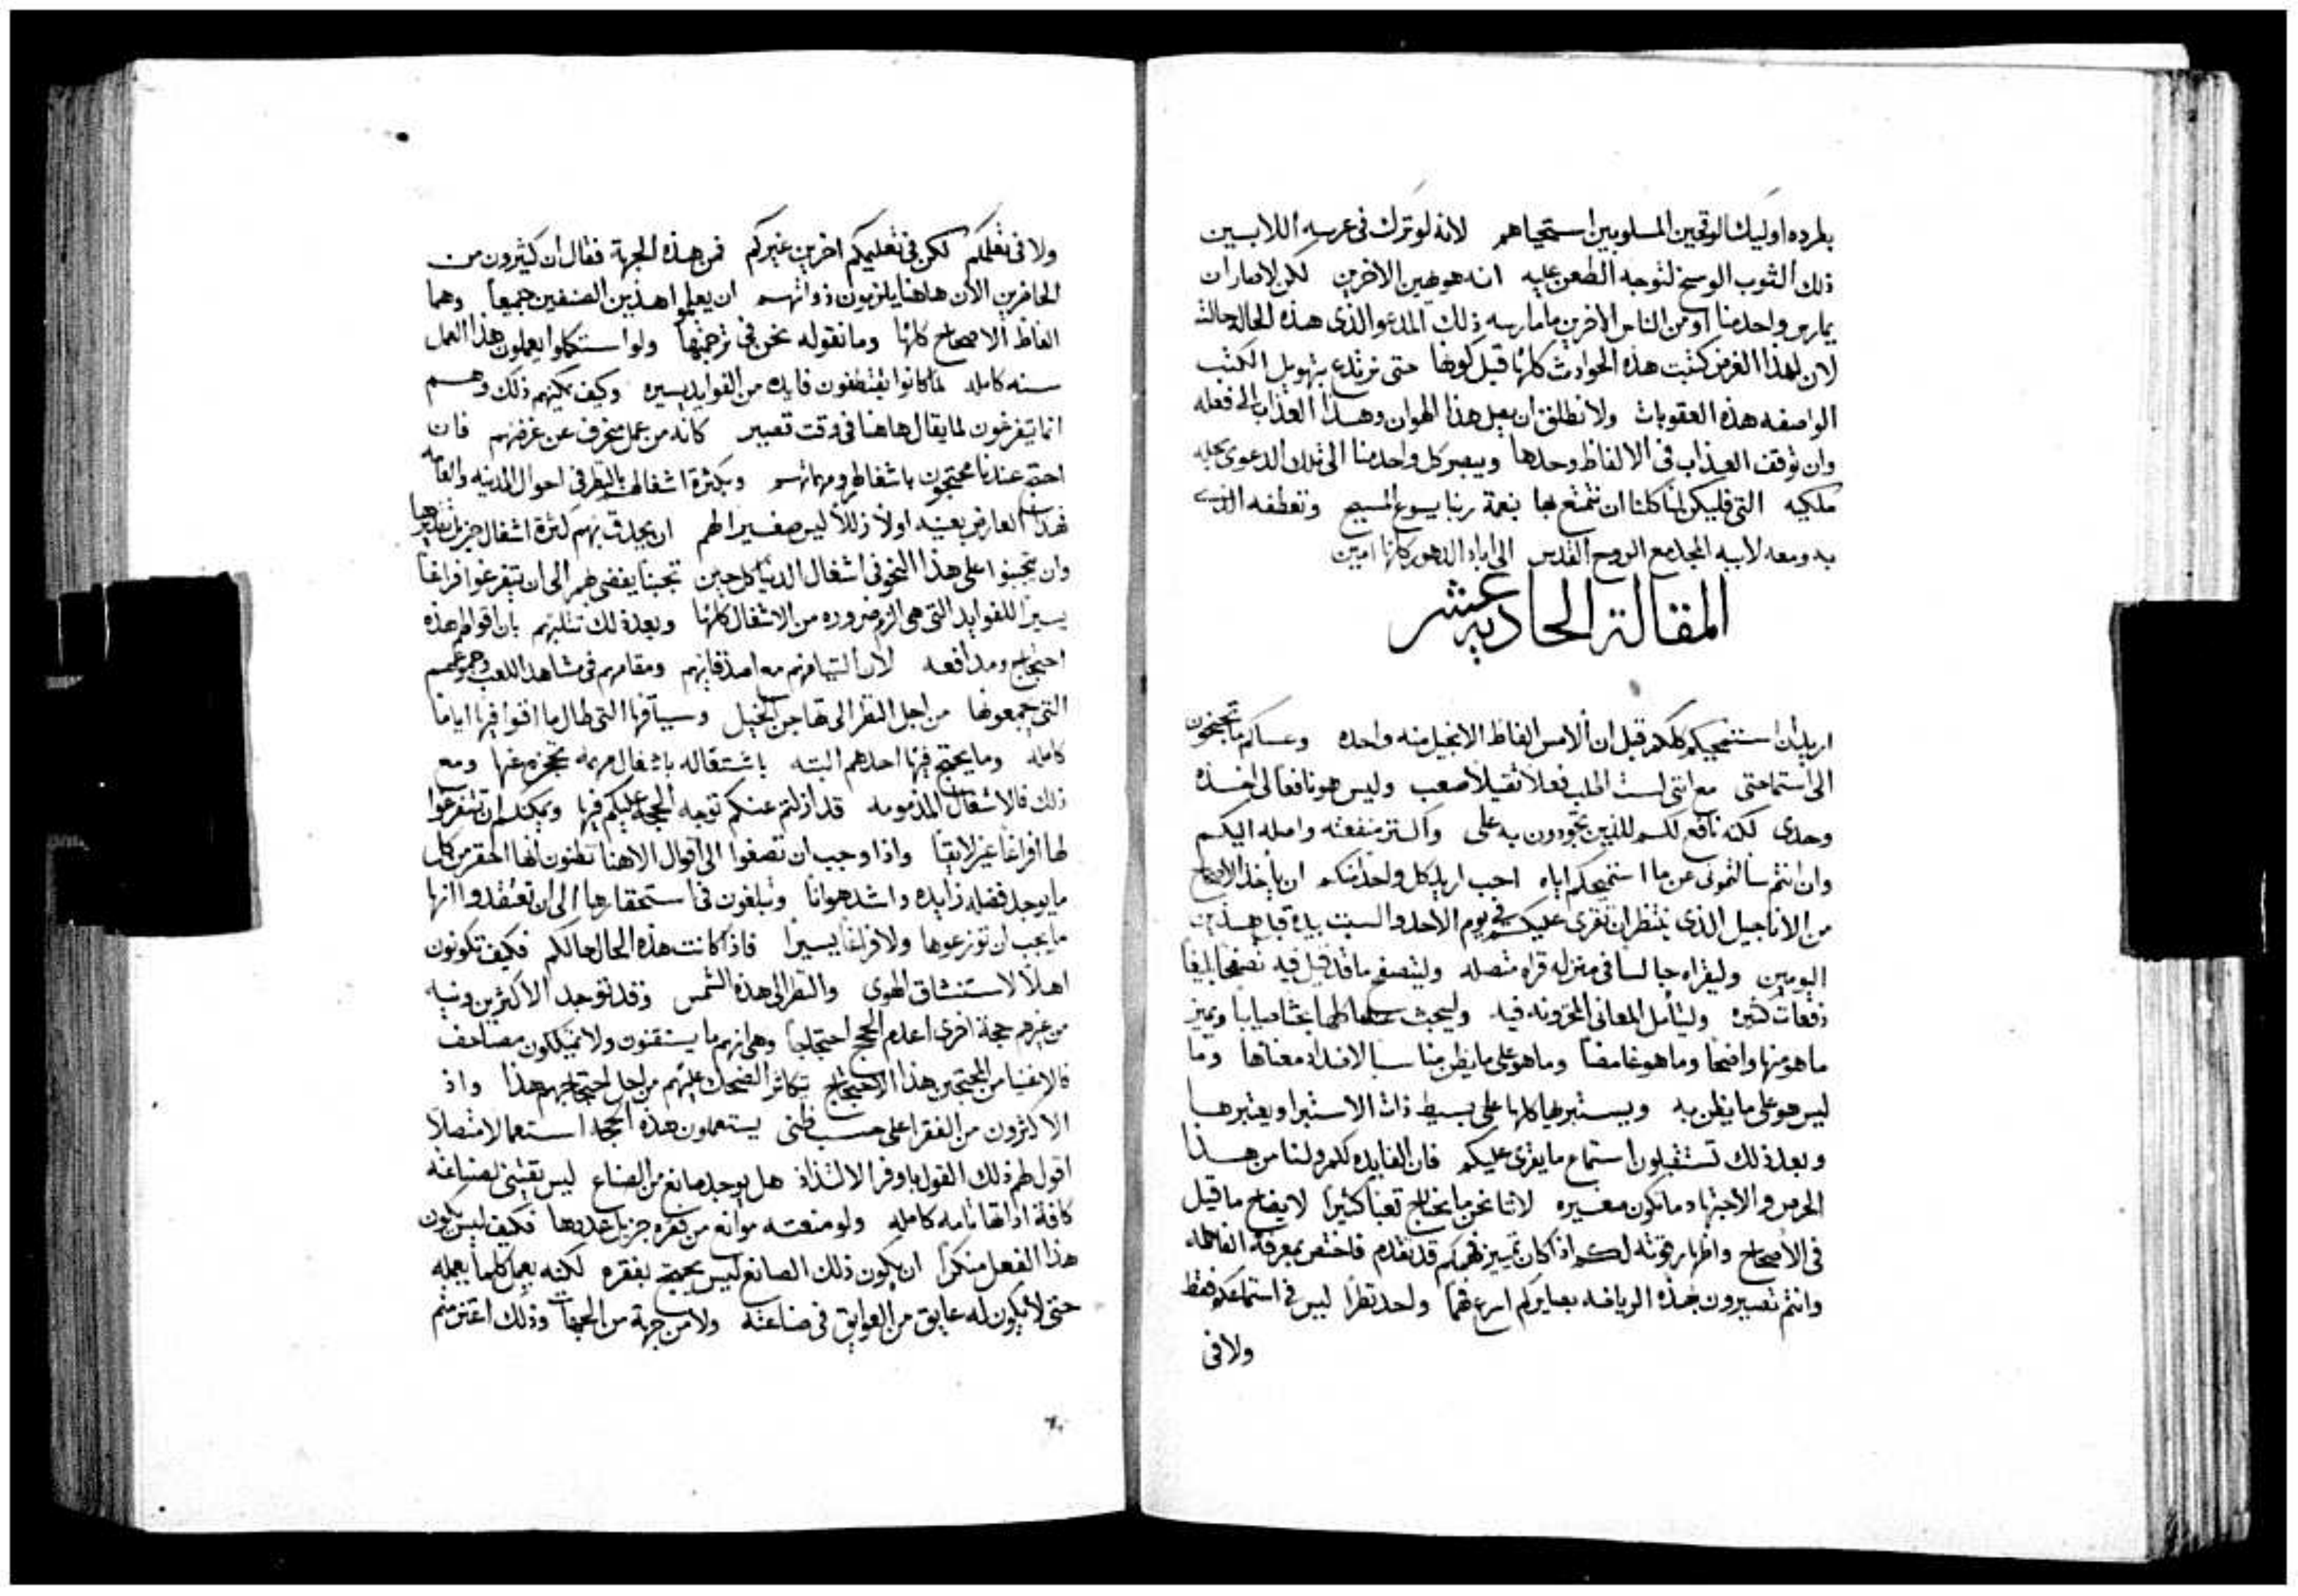 بطرده اوليك الوقحين المسلوبين استحياهم لانه لو ترك في عرسه اللابسين
ذلك الثوب الوسخ لتوجه الطعن عليه انه هو يهين الاخرين لكن لا صار ان
يمارس واحد منا او من الناس الاخرين ما مارسه ذلك المدعو الذي هذه الحال حالته
لان لهذا الغرض كتبت هذه الحوادث كلها قبل كونها حتى نرتدع بتهويل الكتب
الواصفه هذه العقوبات ولا نطلق ان يصل هذا الهوان وهذا العذاب الى فعله
وان نوقف العذاب في الالفاظ وحدها ويبصر كل واحد منا الى تلك الدعوى بحله
ملكيه التي فليكن لنا كلنا ان نتمتع بها بنعمة ربنا يسوع المسيح وتعطفه الذي
به ومعه لابيه المجد مع الروح القدس الى اباد الدهور كلها امين
المقالة الحاديه عشر
اريد ان استنمحيكم كلكم قبل ان الامس الفاظ الانجيل منه واحده وعساكم ما تحتجون
الى استماحتي مع انني لست اطلب فعلا ثقيلا صعب وليس هو نافعا لي اخذه
وحدي لكنه نافع لكم للذين تجودون به علي واكثر منفعته واصله اليكم
وان انتم سالتموني عن ما استميحكم اياه احب اريد كل واحد منكم ان ياخذ الاصحاح
من الاناجيل الذي ينتظر ان تقرى عليكم في يوم الاحد والسبت بيده قبل هذين
اليومين وليقراه جالسا في منزله قراه متصله وليتصفح ما قد قيل فيه تصفحا بليغا
دفعات كثيره وليتامل المعاني المخزونه فيه وليبحث عنها كلها بحثا صايبا ويميز
ما هو منها واضحا وما هو غامضا وما هو على ما يظن مناسبا لاضداد معناها وما
ليس هو على ما يظن به ويستبريها كلها على بسيط ذات الاستبرا ويعتبرها
وبعد ذلك تستقبلون استماع ما يقرى عليكم فان الفايده لكم ولنا من هذا
الحرص والاجتهاد ما تكون صغيره لاننا نحن ما نحتاج تعبا كثيرا لايضاح ما قيل
في الاصحاح واظهار قوته لكم اذا كان تمييز فهمكم قد تقدم فاختص بمعرفة الفاظه
وانتم تصيرون بهذه الرياضه بصايركم اسرع فهما واحد نظرا ليس في استماعكم فقط
ولا في
ولا في تعلمكم لكن في تعليمكم اخرين غيركم فمن هذه الجهة فقال ان كثيرون من
الحاضرين الان هاهنا يلزمون ذواتهم ان يعلموا هذين الصنفين جميعا وهما
الفاظ الاصحاح كلها وما نقوله نحن في ترجمتها ولو استكملوا يعملون هذا العمل
سنه كامله لما كانوا يقتطفون فايده من الفوايد يسيره وكيف يمكنهم ذلك وهم
انما يتفرغون لما يقال هاهنا في وقت قصير كانه من عمل منحرف عن غرضهم فان
احتج عندنا محتجون باشغالهم ومهماتهم وبكثرة اشغالهم بالنظر في احوال المدينه والعامه
فهذا العارض بعينه اولا زللا ليس صغيرا لهم ان يحدق بهم كثرة اشغال جزيل تقديرها
وان يتجنبوا على هذا النحو في اشغال الدنيا كل حين تجنبا يفضي بهم الى ان يتفرغوا فراغا
يسيرا للفوايد التي هي الزم ضروره من الاشغال كلها وبعد ذلك نثلبهم بان اقوالهم هذه
احتجاج ومدافعه لان التيامهم مع اصدقايهم ومقامهم في مشاهد اللعب وجموعهم
التي يجمعونها من اجل النظر الى تهاجن الخيل وسباقها التي طال ما افنوا فيها اياما
كامله وما يحتج فيها احدهم البته باشتغاله باشغال مهمه تحجزه عنها ومع
ذلك فالاشغال المذمومه قد ازلتم عنكم توجه الحجج عليكم فيها ويمكنكم ان تتفرغوا
لها افراغا غير لايقا واذا وجب ان تصغوا الى اقوال الاهنا تظنون انها احقر من كل
ما يوجد فضله زايده واشد هوانا وتبلغون في استحقارها الى ان تعتقدوا انها
ما يجب ان توزعوها ولا فراغا يسيرا فاذا كانت هذه الحال حالكم فكيف تكونون
اهلا لاستنشاق الهوى والنظر الى هذه الشمس وقد توجد الاكثرين ونيه
من غيرهم حجة اخرى اعدم الحجج احتجاجا وهي انهم ما يستقنون ولا يمتلكون مصاحف
فالاغنيا من المحتجين هذا الاحتجاج يتكاثر الضحك عليهم من اجل احتجاجهم هذا واذ
الاكثرون من الفقرا على حسب ظني يستعملون هذه الحجه استعمالا متصلا
اقول لهم ذلك القول باوفر الالتذاذ هل يوجد صانع من الصناع ليس يقتني لصناعته
كافة اداتها تامه كامله ولو منعته موانع من فقره جزيل عددها فكيف ليس يكون
هذا الفعل منكرا ان يكون ذلك الصانع ليس يحتج بفقره لكنه يعمل كلما يعمله
حتى لا يكون له عايق من العوايق في صناعته ولا من جهة من الجهات وذلك اعتزمتم